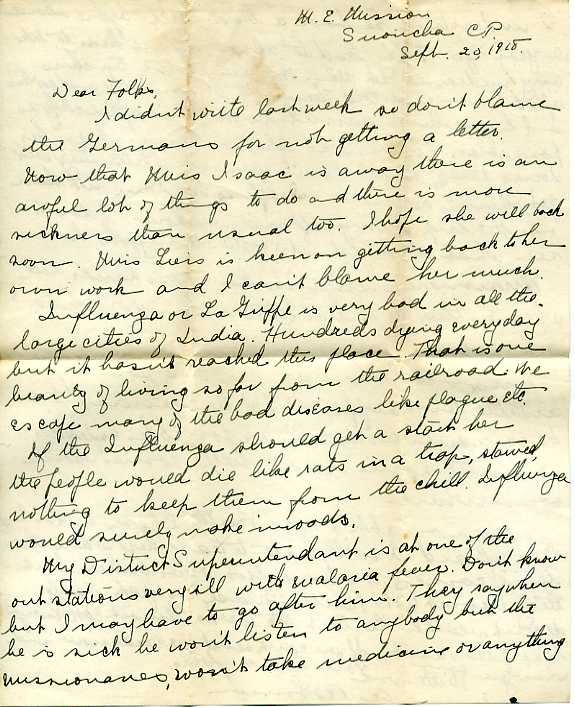 M. E. Mission
Sironcha C.P.
Sept. 20, 1918.
Dear Folks,
I didn't write last week so don't blame
the Germans for not getting a letter.
Now that Miss Isaac is away there is an
awful lot of things to do and there is more
sickness than usual too. I hope she will back
soon. Miss Liers is keen on getting back to her
own work and I can't blame her much.
Influenza or La Griffe is very bad in all the
large cities of India. Hundreds dying everyday
but it hasn't reached this place. That is one
beauty of living so far from the railroad we
escape many of the bad diseases like plague etc.
If the Influenza should get a start her
the people would die like rats in a trap, starved,
nothing to keep them from the chill. Influenza
would surely make inroads.
My District Superintendant is at one of the
out stations very ill with malaria fever. Don't know
but I may have to go after him. They say when
he is sick he won't listen to anybody but the
missionaries, won't take medicine or anything